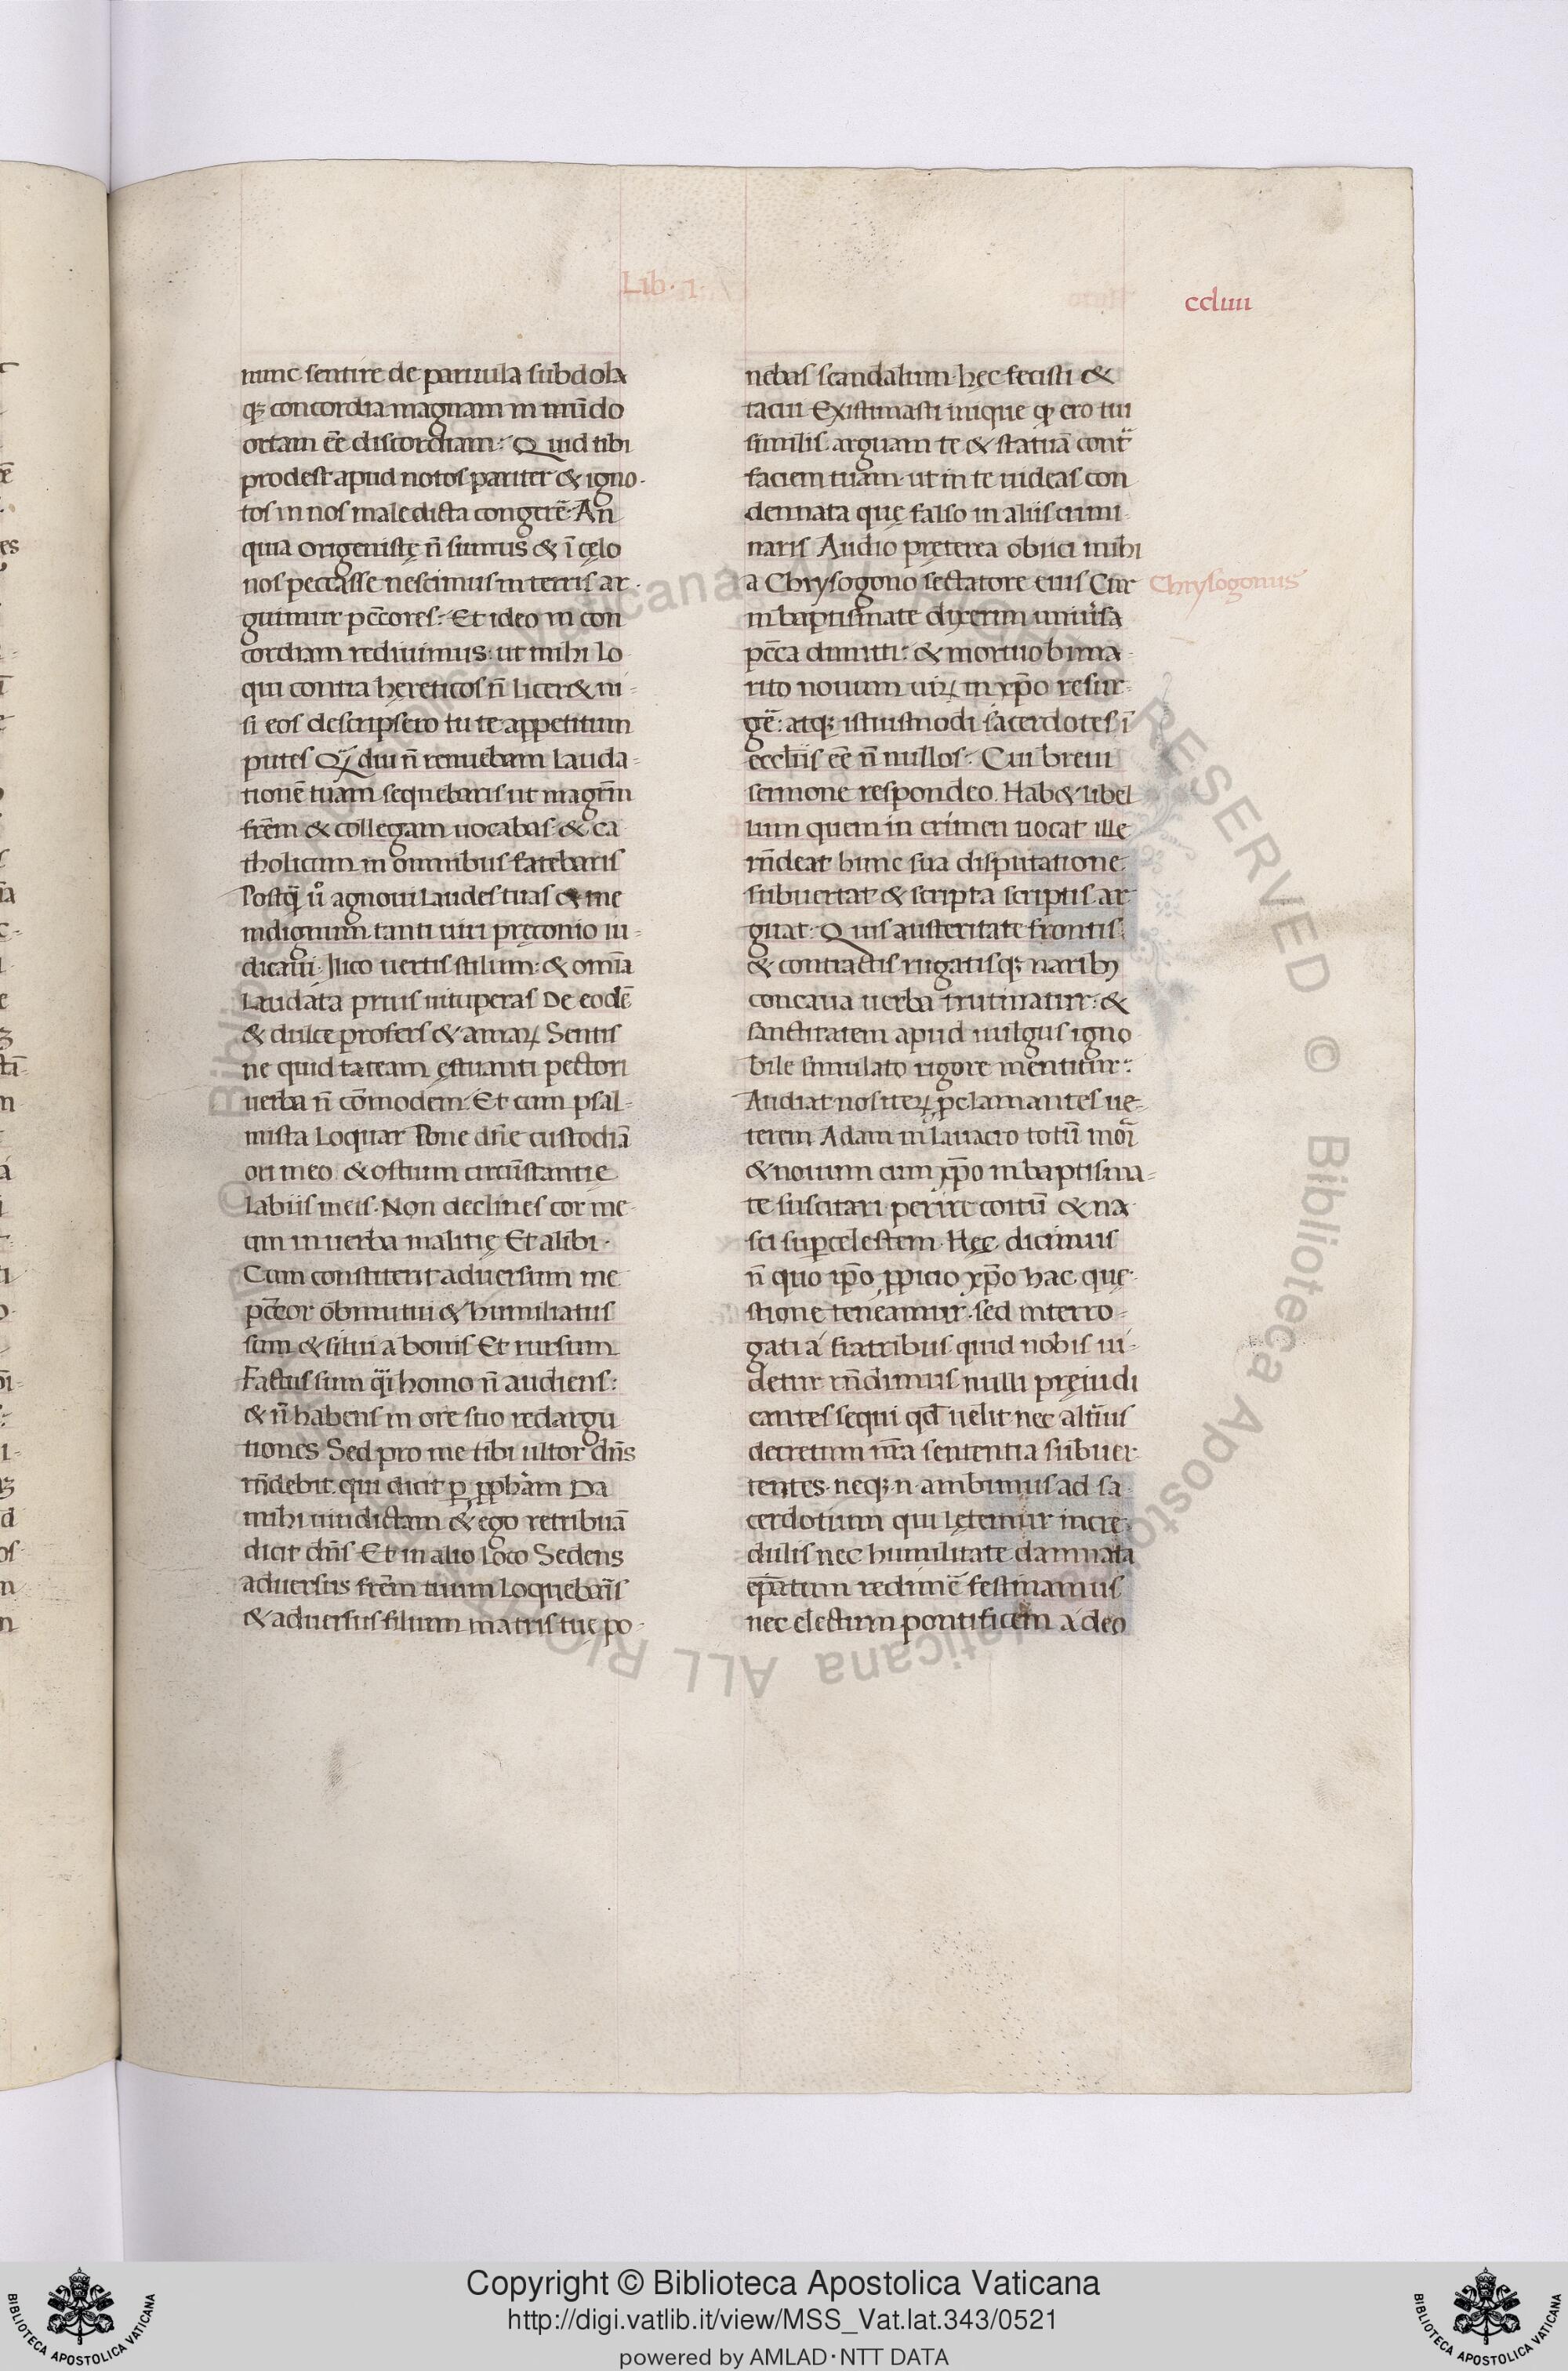 Lib. 1.
ccliiii
nunc sentire de paruula subdola
qꝫ concordia magnam in mūdo
ortam eē discordiam: Quid tibi
prodest apud notos pariter & igno-
tos in nos maledicta congerē. An
quia origenistę n̄ sumus & ī cęlo
nos peccasse nescimus in terris ar-
guimur pc̄cores: Et ideo in con
cordiam rediuimus: ut mihi lo
qui contra hęreticos n̄ licer& ni-
si eos descripsero tu te appetitum
putes Qꝫ diu n̄ renuebam lauda-
tionē tuam sequebaris ut magr̄m
frēm & collegam uocabas & ca
tholicum in omnibus fatebaris
Postq̄ ů agnoui laudes tuas & me
indignum tanti uiri pręconio iu-
dicaui. Ilico uertis stilum: & omīa
laudata prius uituperas De eodē
& dulce profers & amaꝝ Sentis
ne quid taceam ęstuanti pectori
uerba n̄ cōmodem. Et cum psal-
mista loquar Pone dn̄e custodiā
ori meo & ostium circūstantię
labiis meis. Non declines cor me-
um in uerba malitię Et alibi.
Cum constiterit aduersum me
pc̄cor obmutui & humiliatus
sum & silui a bonis Et rursum
Factus sum q̄i homo n̄ audiens:
& n̄ habens in ore suo redargu
tiones Sed pro me tibi ultor dn̄s
rn̄debit qui dicit ꝑ ꝓpham Da
mihi uindictam & ego retribuā
dicit dn̄s Et in alio loco Sedens
aduersus frēm tuum loquebar̄s
& aduersus filium matris tuę po-
nebas scandalum. hęc fecisti &
tacui Existimasti inique ꝙ ero tui
similis. arguam te & statuā cont̄
faciem tuam. ut in te uideas con
demnata quę falso in aliis crimi-
naris Audio pręterea obiici mihi
a Chrysogono sectatore eius Cur
Chrysogonus
in baptismate dixerim uniu̓sa
pc̄ca dimitti: & mortuo bima-
rito nouum uiꝝ in xp̄o resur-
gē: atqꝫ istiusmodi sacerdotes ī
eccłiis eē n̄ nullos: Cui breui
sermone respondeo. Hab& libel
lum quem in crimen uocat ille
rn̄deat hunc sua disputatione
subuertat & scripta scriptis ar-
guat. Quis austeritate frontis
& contractis rugatisqꝫ naribꝫ
concaua uerba trutinatur: &
sanctitatem apud uulgus igno
bile simulato rigore mentitur:
Audiat nos iteꝝ ꝓclamantes ue-
terem Adam in lauacro totū mori
& nouum cum xp̄o in baptisma-
te suscitari perire coitū & na
sci suꝑcelestem. Hęc dicimus
n̄ quo ip̄o ꝓpicio xp̄o hac quę-
stione teneamur. sed interro-
gati a fratribus quid nobis ui-
detur rn̄dimus nulli pręiudi
cantes sequi qd̄ uelit nec altīus
decretum nr̄a sententia subuer-
tentes. neqꝫ n. ambimus ad sa
cerdotium qui lętemur incre-
dulis nec humilitate damnata
ep̄atum redimē festinamus
nec electum pontificem a deo
Copyright © Biblioteca Apostolica Vaticana
http://digi.vatlib.it/view/MSS_Vat.lat.343/0521
powered by AMLAD·NTT DATA